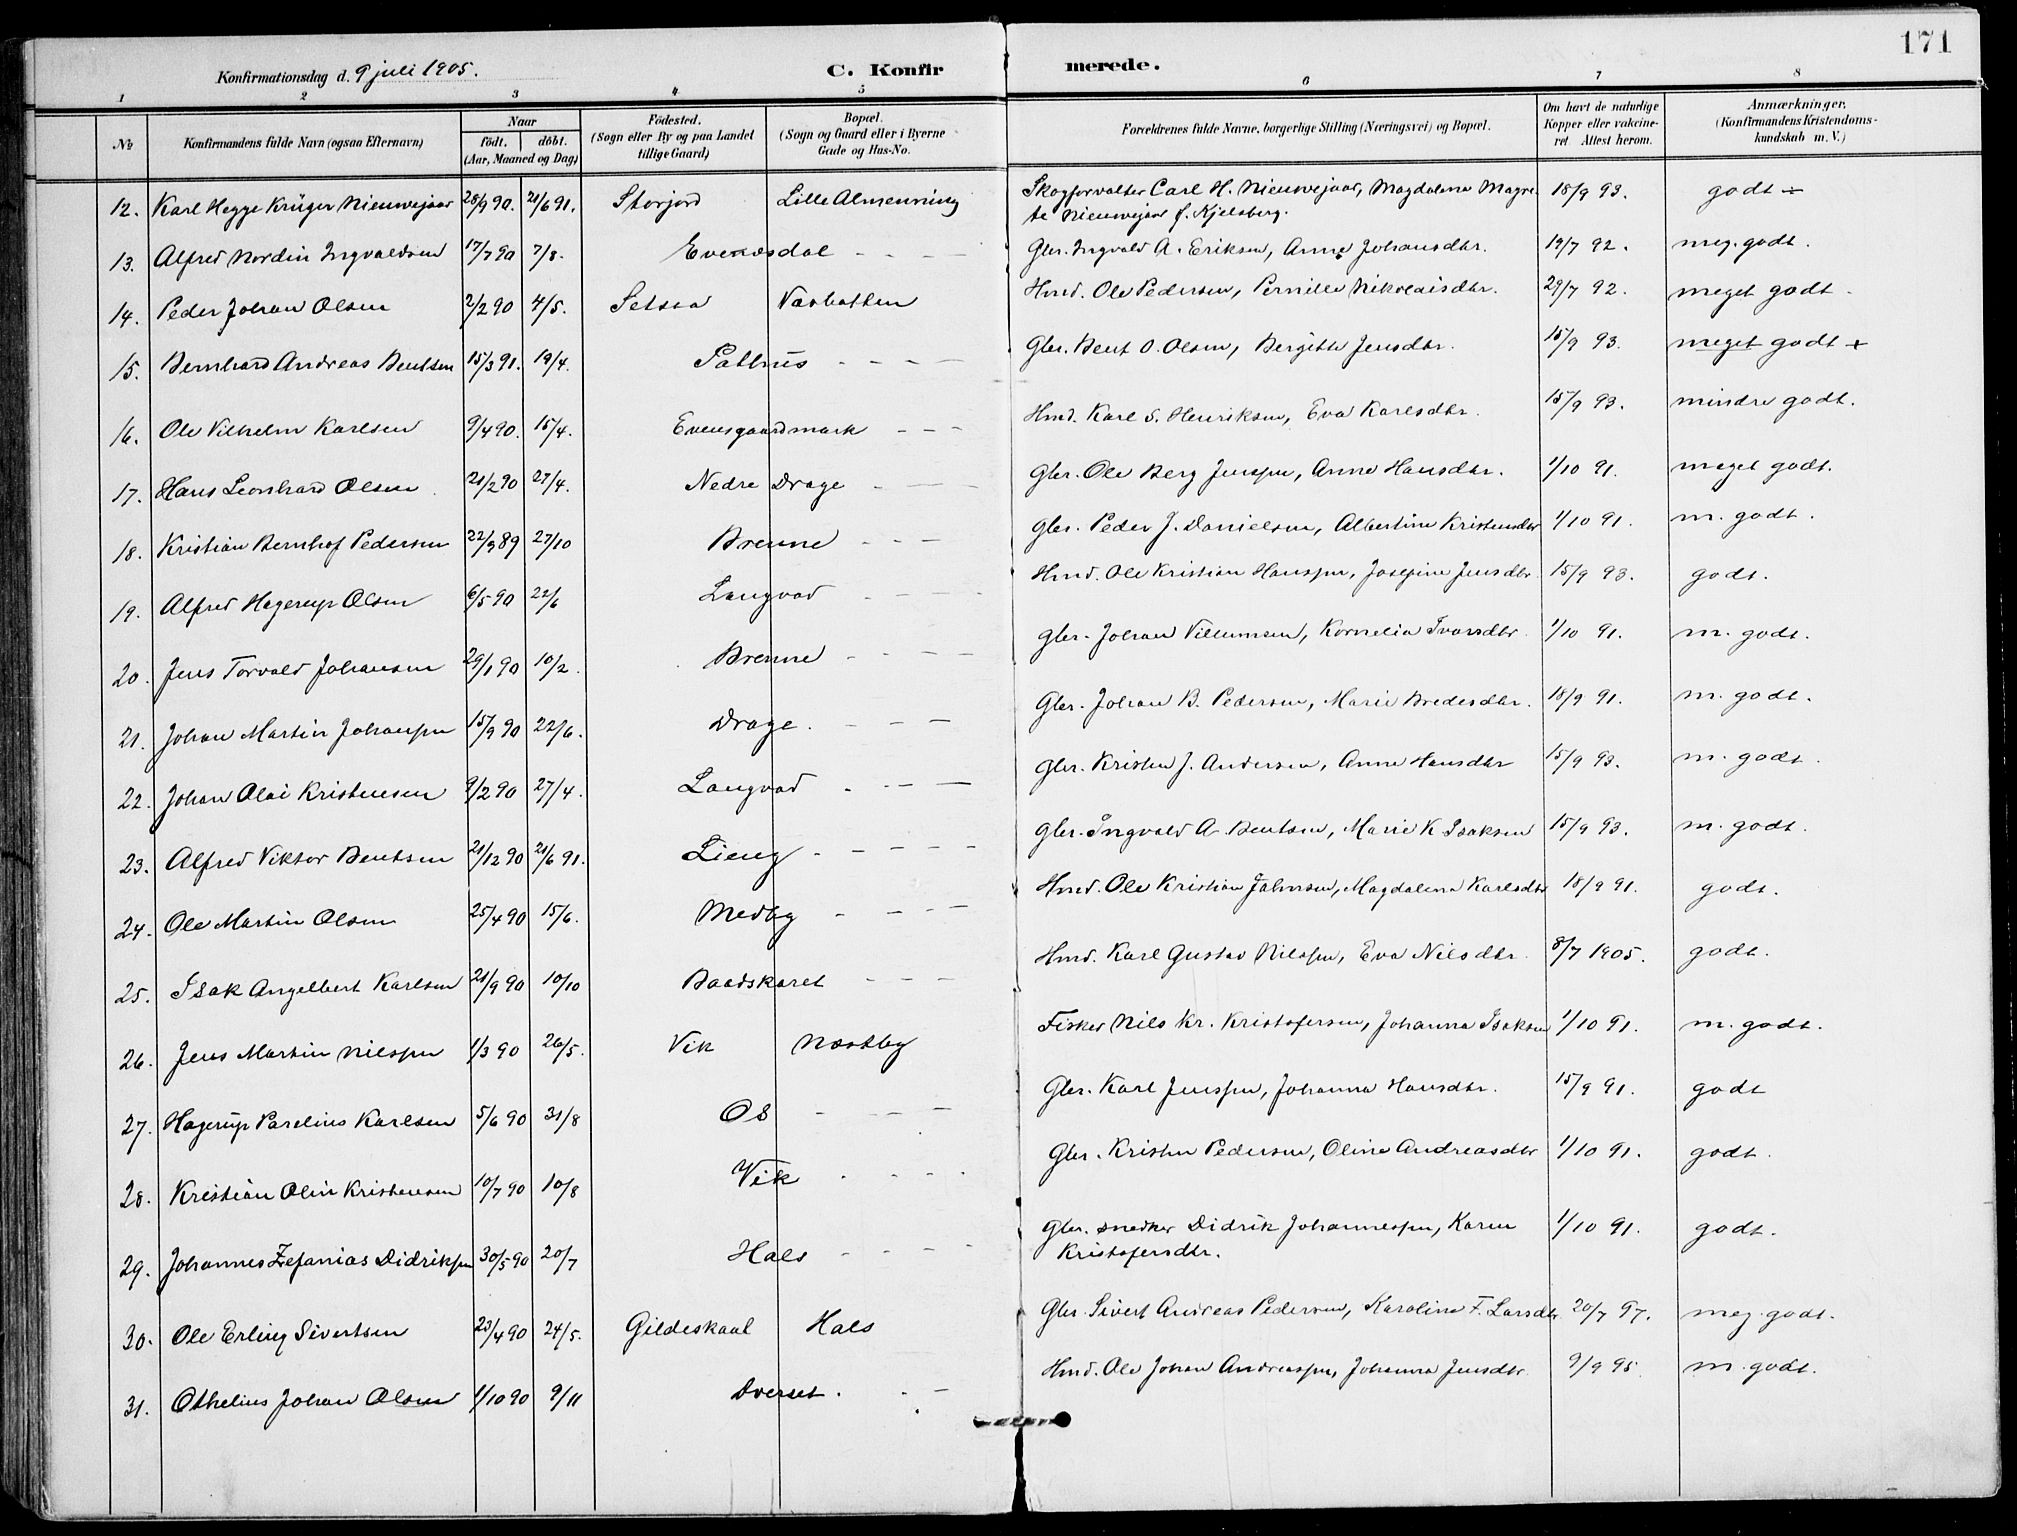 171
Konfirmationsdag d. 9 juli 1905.
C. Konfirmerede.
1 2 3 4 5 6 7 8
№
Konfirmandens fulde Navn (ogsaa Efternavn)
Naar
födt. döbt.
(Aar, Maaned og Dag)
Födested.
(Sogn eller By og paa Landet
tillige Gaard)
Bopæl.
(Sogn og Gaard eller i Byerne
Gade og Hus-No.
Forældrenes fulde Navne, borgerlige Stilling (Næringsvei) og Bopæl.
Om havt de naturlige
Kopper eller vakcine-
ret Attest herom.
Anmærkninger.
(Konfirmandens Kristendoms-
kundskab m. V.)
12. Karl Hegge Krüger Nieuwejaar 28/9 90. 21/6 91. Storjord Lille Almenning Skogforvalter Carl H. Nieuwejaar, Magdalena Magre- 18/9 93. godt
te Nieuwejaar f. Kjelsberg.
13. Alfred Nordin Ingvaldsen 17/7 90 7/8. Evenesdal - - - Gbr. Ingvald A. Eriksen, Anne Johansdtr. 19/7 92. meg. godt.
14. Peder Johan Olsen 2/2 90 4/5. Setsaa Vasbotten Hmd. Ole Pedersen, Pernille Nikolaisdtr. 29/7 92. meget godt.
15. Bernhard Andreas Bentsen 15/3 91. 19/4. Salthus - - - Gbr. Bent O. Olsen, Bergitte Jensdtr. 15/9 93. meget godt +
16. Ole Vilhelm Karlsen 9/4 90. 15/4. Evensgaardmark - - - Hmd. Karl S. Henriksen, Eva Karlsdtr. 15/9 93. mindre godt.
17. Hans Leonhard Olsen 21/2 90 27/4. Nedre Drage - - - Gbr. Ole Berg Jenssen, Anne Hansdtr. 1/10 91. meget godt.
18. Kristian Bernhof Pedersen 22/9 89 27/10 Brenne - - - Gbr. Peder J. Danielsen, Albertine Kristensdtr 1/10 91. m. godt.
19. Alfred Hagerup Olsen 6/5 90 22/6 Langvad - - - Hmd. Ole Kristian Hanssen, Josefine Jensdtr. 15/9 93. godt.
20. Jens Torvald Johansen 29/1 90 10/2. Brenne - - - Gbr. Johan Villumsen, Kornelia Ivarsdtr. 1/10 91. m. godt.
21. Johan Martin Johanssen 15/9 90 22/6. Drage. - - - Gbr. Johan B. Pedersen, Marie Bredesdtr. 18/9 91. m. godt.
22. Johan Olai Kristensen 9/2 90 27/4. Langvad - - - Gbr. Kristen J. Andersen, Anne Hansdtr 15/9 93. m. godt.
23. Alfred Viktor Bentsen 21/12 90 21/6 91. Lieng - - - Gbr. Ingvald A. Bentsen, Marie K Isaksen 15/9 93. m. godt.
24. Ole Martin Olsen 25/4 90 15/6. Medby - - - Hmd. Ole Kristian Jahnsen, Magdalena Karlsdtr 18/9 91. godt.
25. Isak Angelbert Karlsen 21/9 90 10/10 Baadskaret - - - Hmd. Karl Gustav Nilssen, Eva Nilsdtr. 8/7 1905. godt.
26. Jens Martin Nilssen 1/3 90 26/5. Vik Næstby Fisker Nils Kr. Kristofersen, Johanna Isaksen 1/10 91. m. godt.
27. Hagerup Parelius Karlsen 5/6 90 31/8 Os - - - Gbr. Karl Jenssen, Johanna Hansdtr. 15/9 91. godt
28. Kristian Olin Kristensen 10/7 90 10/8 Vik - - - Gbr. Kristen Pedersen, Oline Andreasdtr 1/10 91. godt.
29. Johannes Zefanias Didriksen 30/5 90 20/7 Hals - - - Gbr. snedker Didrik Johannessen, Karen 1/10 91. godt.
Kristofersdtr.
30. Ole Erling Sivertsen 23/4 90 24/5. Gildeskaal Hals Gbr. Sivert Andreas Pedersen, Karoline F. Larsdtr 20/7 97. meg. godt.
31. Othelius Johan Olsen 1/10 90 9/11 Dverset. - - Hmd. Ole Johan Andreassen, Johanna Jensdtr. 9/9 95. m. godt.